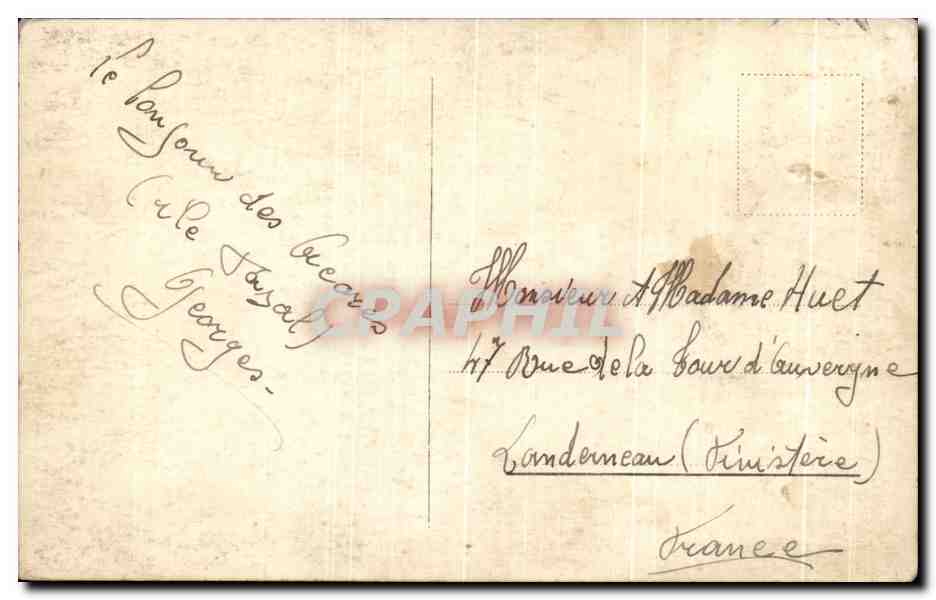 Le bonjour des Acores
(île Fayal)
Georges-
Monsieur et Madame Huet
47 Rue de la Tour d'Auvergne
Landerneau (Finistère)
France
CPAPHIL